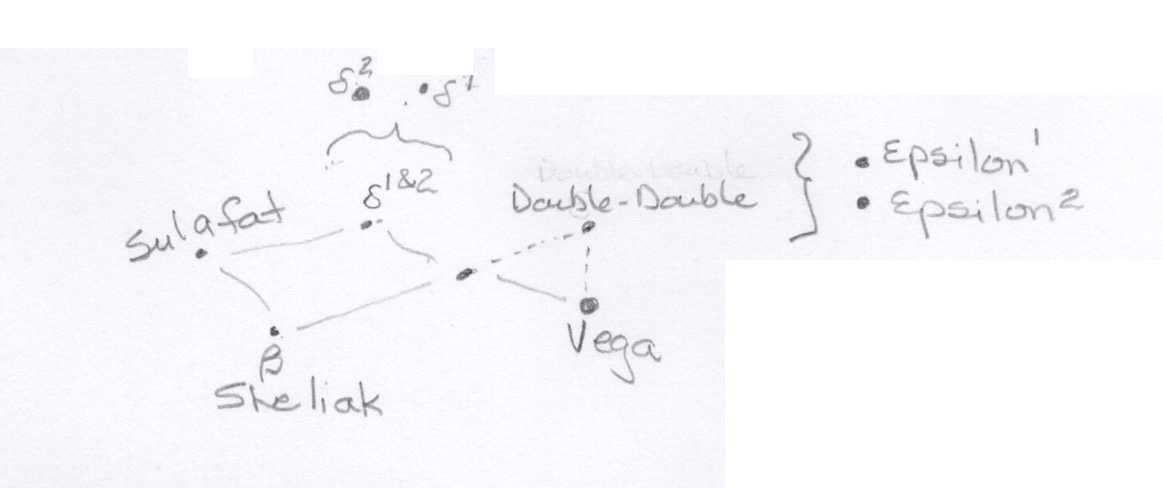 δ² δ¹
δ1&2
Sulafat
Double-Double
Epsilon¹
Epsilon²
Vega
β
Sheliak